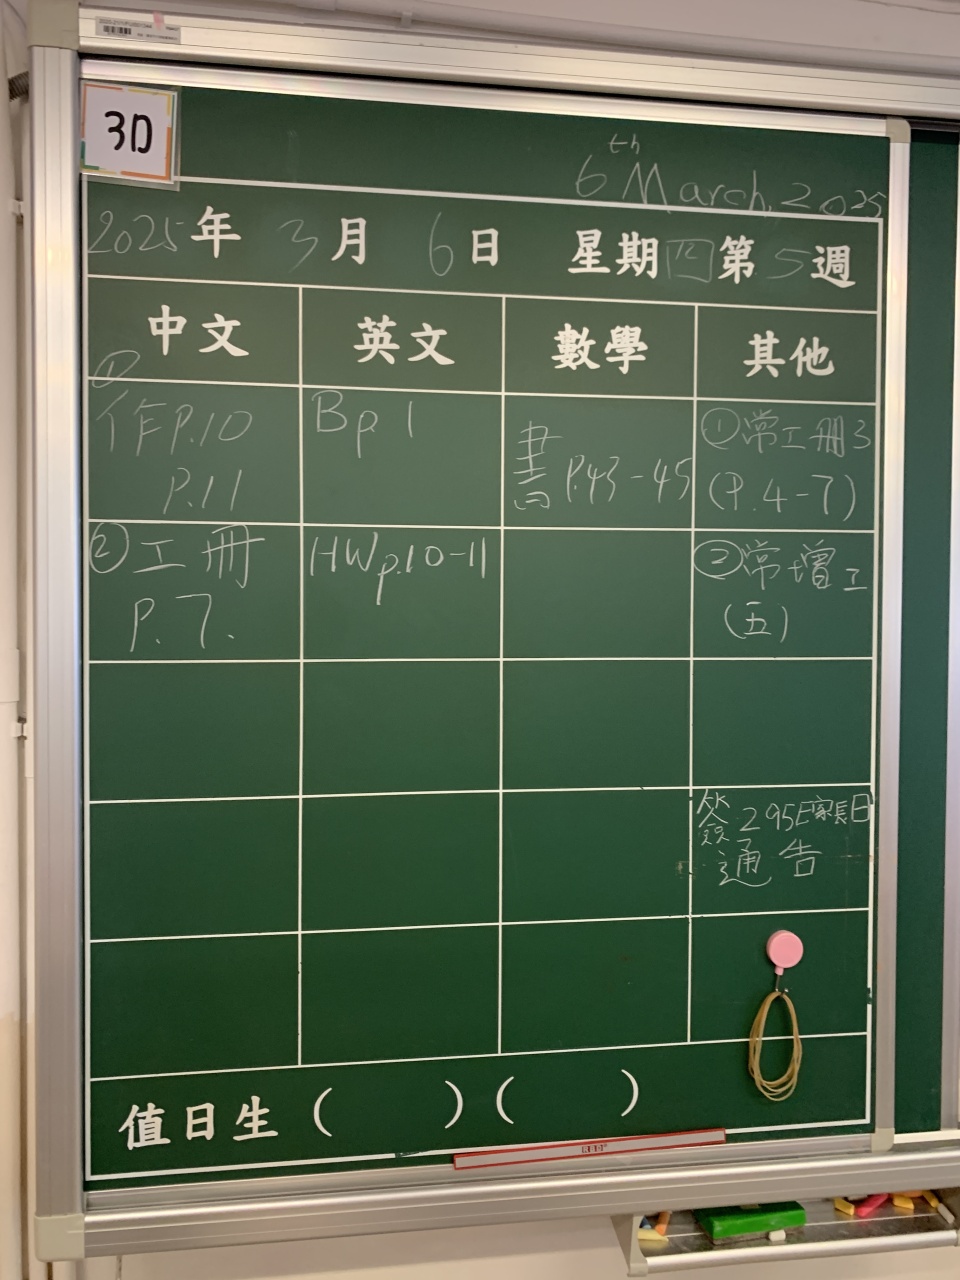 3D
6th March, 2025
2025年 3月 6日 星期四第5週
中文 英文 數學 其他
① 作P.10
P.11
Bp 1
書 P.43-45
①常工册3
(P.4-7)
②工册
P.7.
HWp.10-11
②常增工
(五)
簽295E家長日
通告
值日生 ( ) ( )